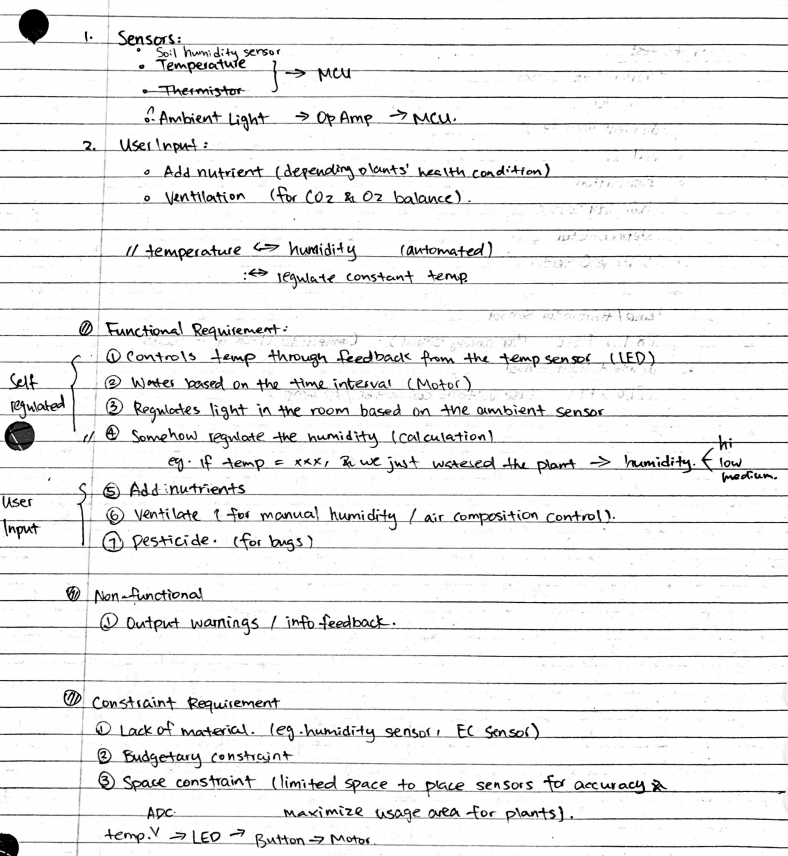 1. Sensors:
• Soil humidity sensor
• Temperature
• Thermistor
} → MCU
• Ambient Light → Op Amp → MCU.
2. User Input:
• Add nutrient (depending plants' health condition)
• Ventilation (for CO2 & O2 balance).
// temperature ↔ humidity (automated)
:↔ regulate constant temp.
Functional Requirement:
Self regulated
① Controls temp through feedback from the temp sensor (LED)
② Water based on the time interval (Motor)
③ Regulates light in the room based on the ambient sensor
// ④ Somehow regulate the humidity (calculation)
eg. if temp = xxx, & we just watered the plant → humidity. < hi low medium.
User Input
⑤ Add nutrients
⑥ Ventilate (for manual humidity / air composition control).
⑦ Pesticide. (for bugs)
Non-functional
① Output warnings / info feedback.
Constraint Requirement
① Lack of material. (eg. humidity sensor, EC sensor)
② Budgetary constraint
③ Space constraint (limited space to place sensors for accuracy &
maximize usage area for plants).
ADC.
temp.V → LED → Button → Motor.